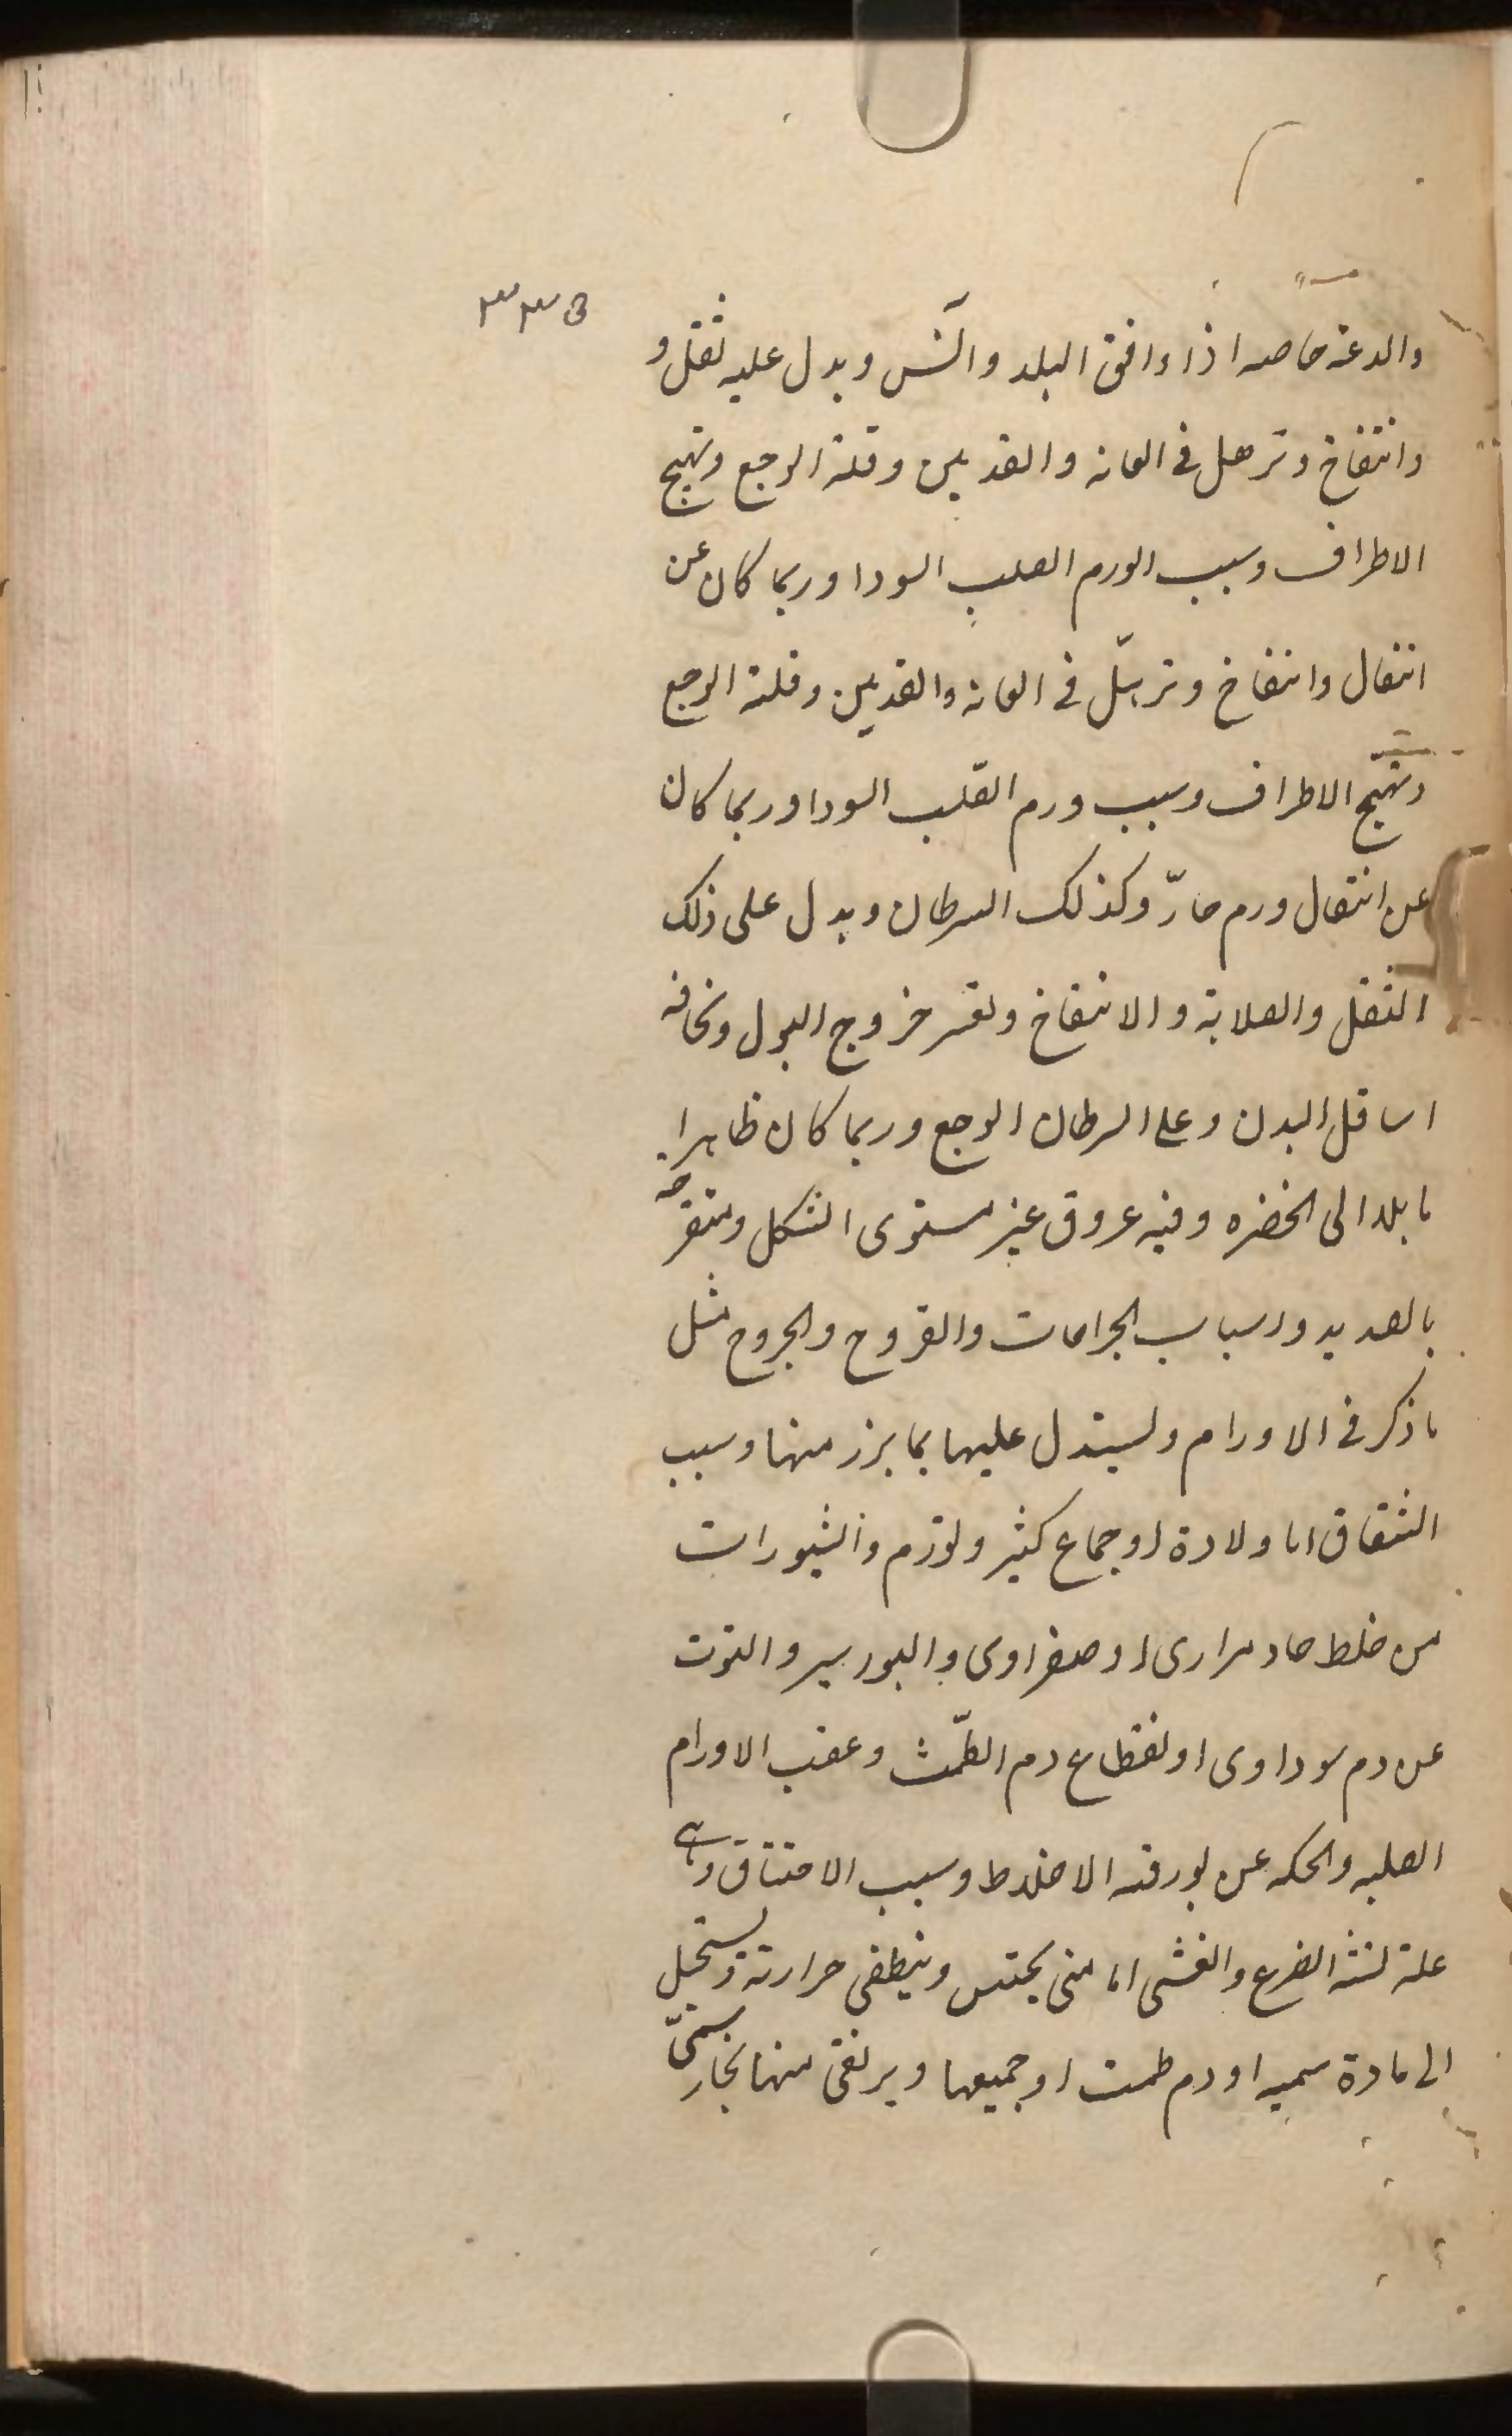 ٣٣٥
والدعة خاصه اذا وافق البلد والسن ويدل عليه ثقل و
وانتفاخ وترهل فى العانه والقدمين وقلة الوجع وتهيج
الاطراف وسبب الورم الصلب السودا وربما كان عن
انتقال وانتفاخ وترهّل فى العانه والقدمين وقلته الوجع
وتهيّج الاطراف وسبب ورم القلب السودا وربما كان
عن انتقال ورم حارّ وكذلك السرطان ويدل على ذلك
الثقل والصلابة والانتفاخ وتعسر خروج البول ونحافه
اسافل البدن وعلى السرطان الوجع وربما كان ظاهرا
مايلا الى الخضره وفيه عروق غير مستوى الشكل ومتقرحه
بالصديد واسباب الجراحات والقروح والجروح مثل
ما ذكر فى الاورام ويستدل عليها بما برز منها وسبب
الشقاق اما ولادة او جماع كثير وتورم والبثورات
من خلط حاد مرارى او صفراوى والبورسير والتوت
عن دم سوداوى او لفظاع دم الطّمث وعقب الاورام
الصلبه والحكه عن بورقه الاخلاط وسبب الاختناق وهى
علة لشبه الصرع والغشى اما منى يحتبس وينطفى حرارته ويستحيل
الى مادة سميه او دم طمت او جميعها ويرتقى منها بخار سمىّ